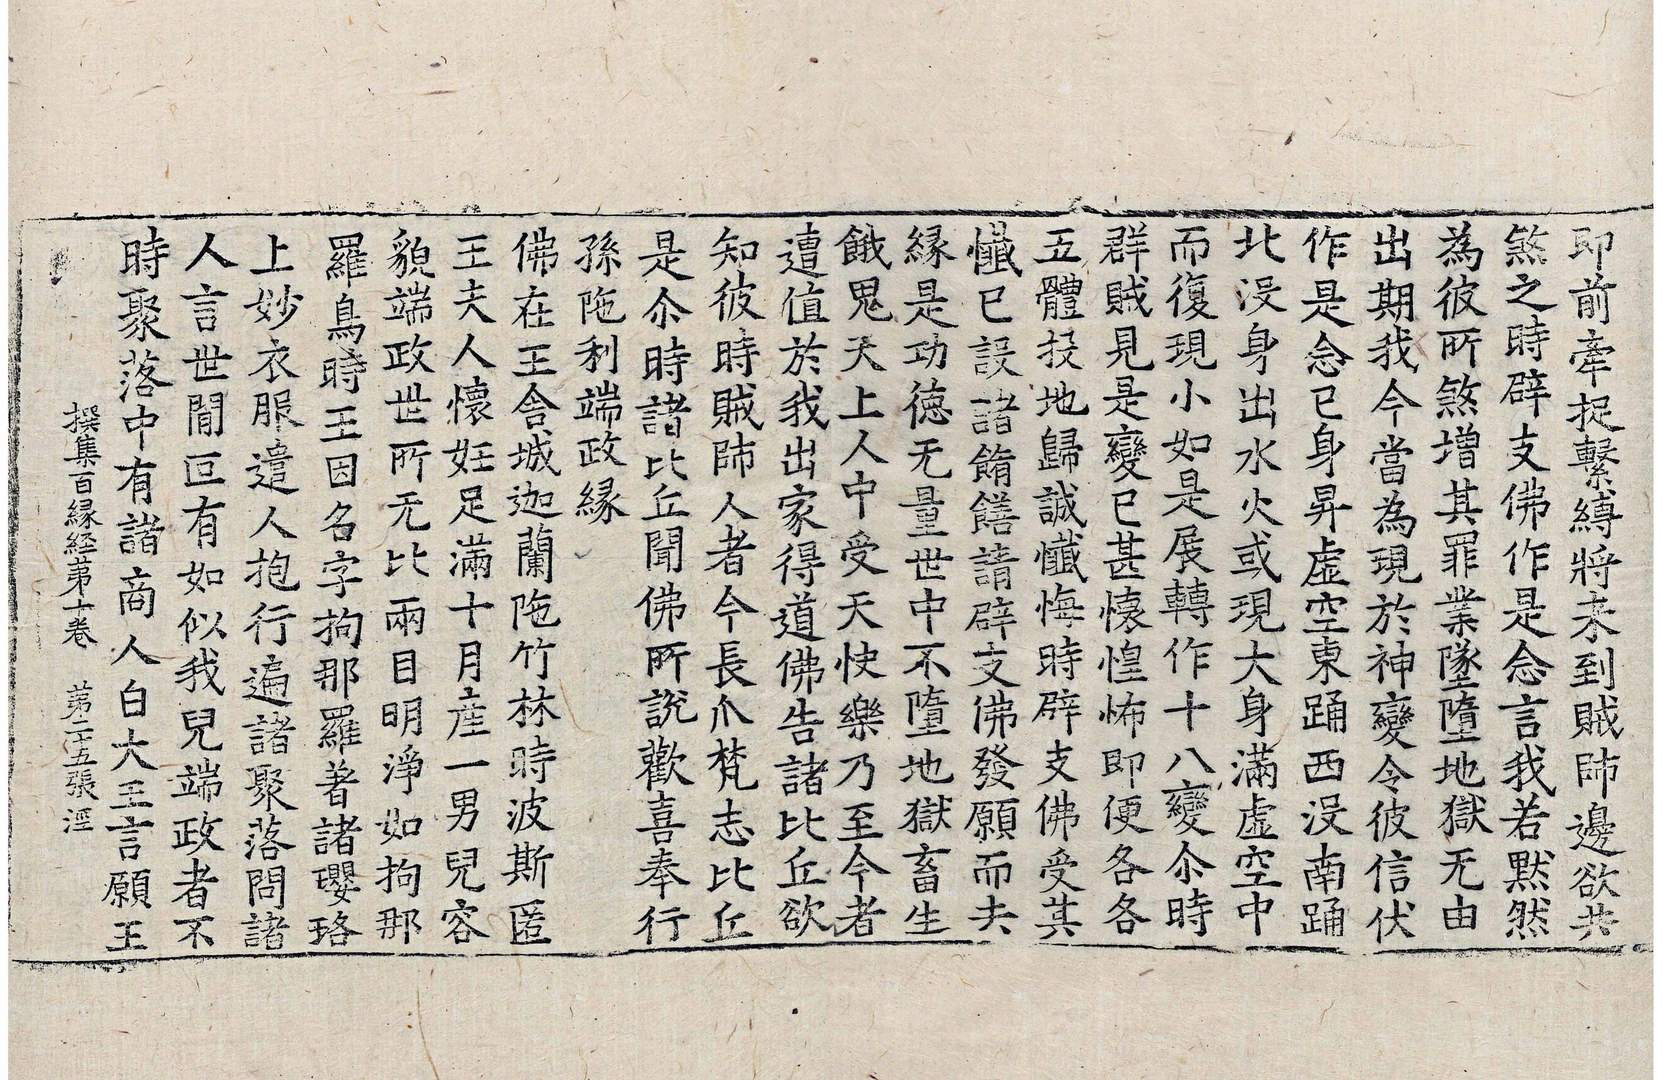 即前牽捉繫縛將来到賊帥邊欲共
煞之時辟支佛作是念言我若黙然
為彼所煞增其罪業墜墮地獄无由
出期我今當為現於神變令彼信伏
作是念已身昇虛空東踊西没南踊
北没身出水火或現大身滿虛空中
而復現小如是展轉作十八變尒時
群賊見是變已甚懷惶怖即便各各
五體投地歸誠懺悔時辟支佛受其
懺已設諸餚饍請辟支佛發願而去
緣是功德无量世中不墮地獄畜生
餓鬼天上人中受天快樂乃至今者
遭值於我出家得道佛告諸比丘欲
知彼時賊帥人者今長爪梵志比丘
是尒時諸比丘聞佛所說歡喜奉行
孫陁利端政緣
佛在王舍城迦蘭陁竹林時波斯匿
王夫人懷妊足滿十月產一男兒容
貌端政世所无比兩目明淨如拘那
羅鳥時王因名字拘那羅著諸瓔珞
上妙衣服遣人抱行遍諸聚落問諸
人言世間叵有如似我兒端政者不
時聚落中有諸商人白大王言願王
撰集百緣経苐十卷　苐二十五張　淫